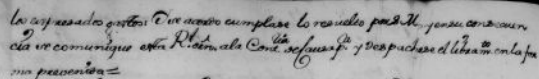 los expresados gastos: Se acordo cumplase lo resuelto por S. M. y en su consequen
cia se comunique esta Rl. orn. a la Conta. de Causa pa. y despachese el libramto. en la for
ma prevenida =